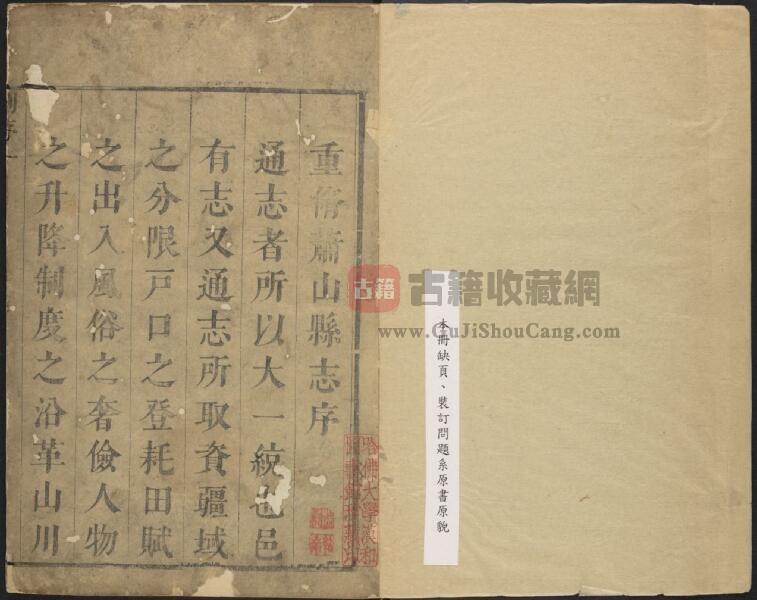 本冊缺頁、裝訂問題系原書原貌
重脩蕭山縣志序
通志者所以大一統也邑
有志又通志所取資疆域
之分限戸口之登耗田賦
之出入風俗之奢儉人物
之升降制度之沿革山川
古籍
古籍收藏網
www.GuJiShouCang.com